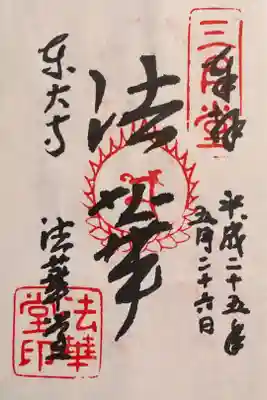 三月堂
奉拝
平成二十五年
五月二十六日
法華
東大寺
法華堂
法華堂印